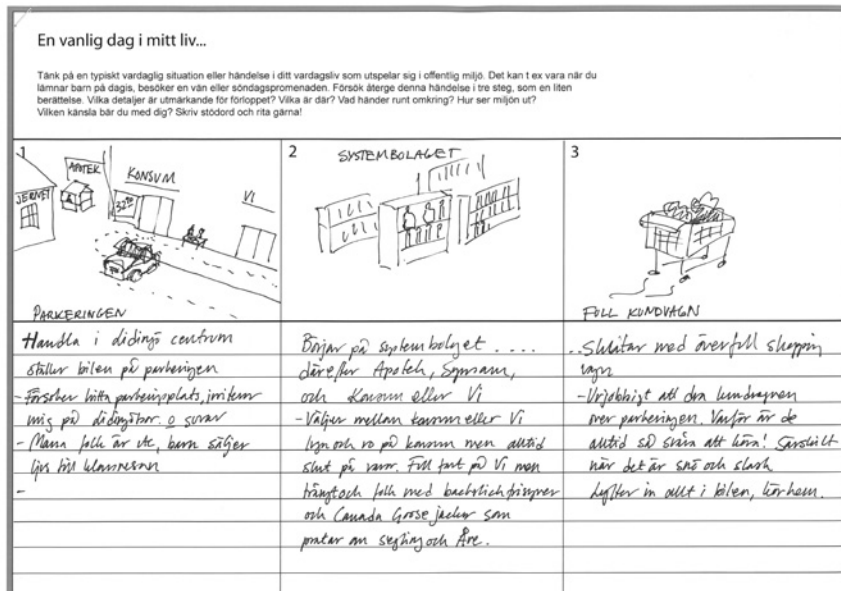 En vanlig dag i mitt liv...
Tänk på en typiskt vardaglig situation eller händelse i ditt vardagsliv som utspelar sig i offentlig miljö. Det kan t ex vara när du
lämnar barn på dagis, besöker en vän eller söndagspromenaden. Försök återge denna händelse i tre steg, som en liten
berättelse. Vilka detaljer är utmärkande för förloppet? Vilka är där? Vad händer runt omkring? Hur ser miljön ut?
Vilken känsla bär du med dig? Skriv stödord och rita gärna!
1
JERNET
APOTEK
KONSUM
VI
PARKERINGEN
Handla i Lidingö centrum
ställer bilen på parkeringen
- Försöker hitta parkeringsplats, irriterar
mig på Lidingöbor. o suvar
- Massa folk är ute, barn säljer
ljus till klassresan
-
2
SYSTEMBOLAGET
Börjar på systembolaget ....
därefter Apotek, Synsam,
och Konsum eller Vi
- Väljer mellan konsum eller Vi
lugn och ro på konsum men alltid
slut på varor. Full fart på Vi men
trångt och folk med backslickfrisyrer
och Canada Goose jackor som
pratar om segling och Åre.
3
FULL KUNDVAGN
...Släntar med överfull shopping
vagn
- Urjobbigt att dra kundvagnen
över parkeringen. Varför är de
alltid så svåra att köra! Särskilt
när det är snö och slask
Lyfter in allt i bilen, kör hem.